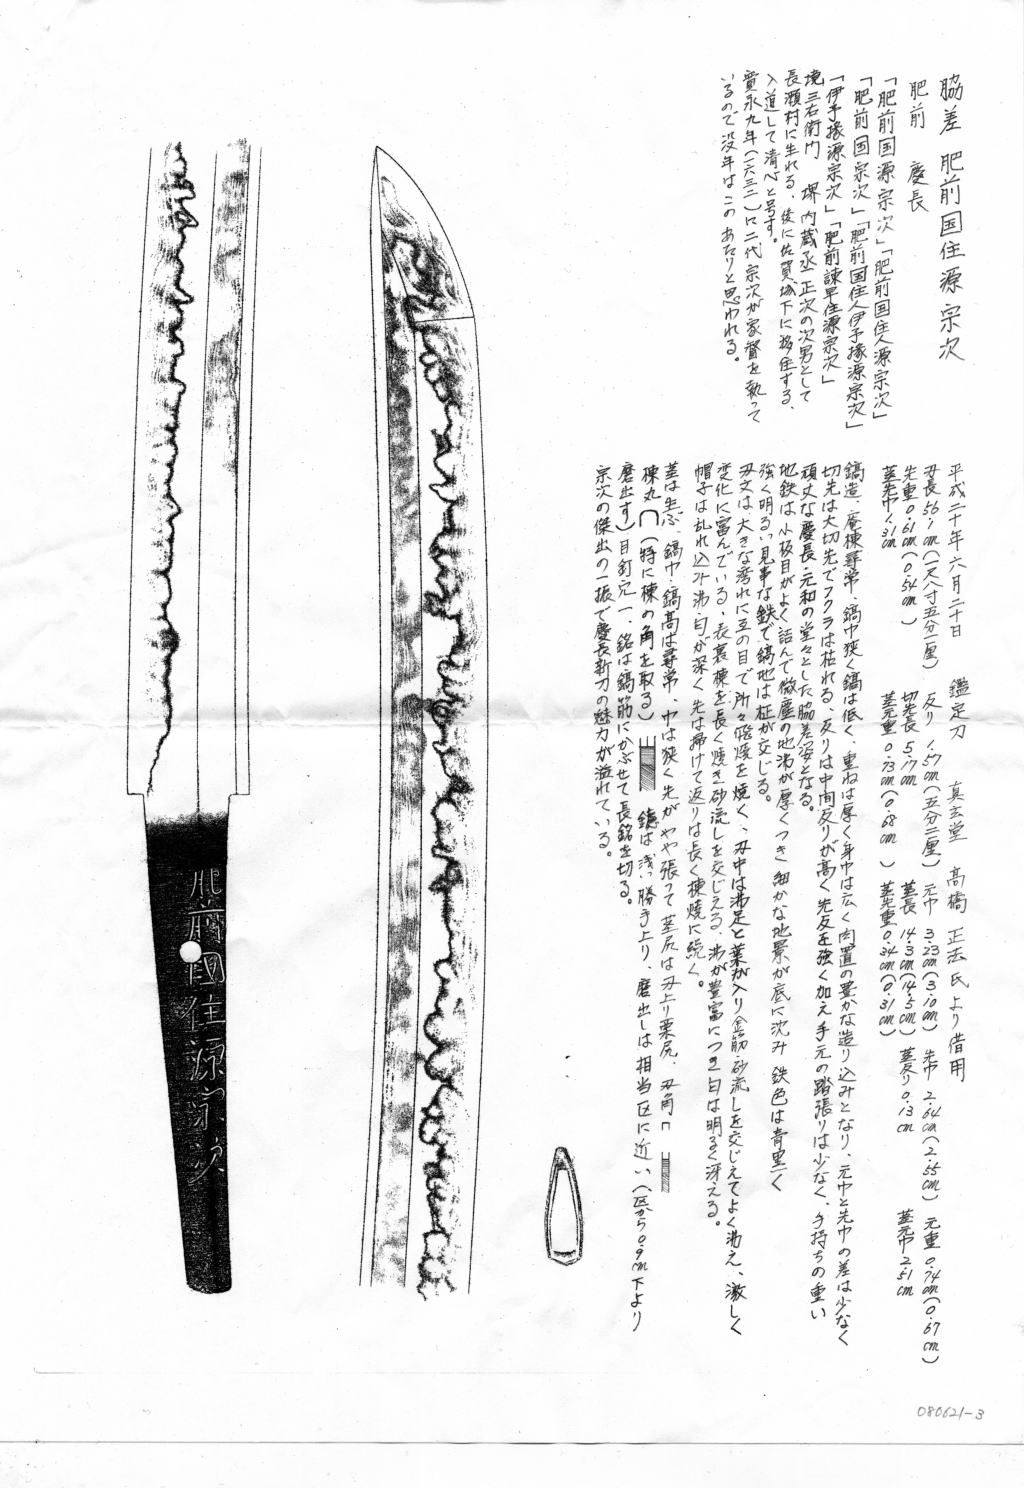 脇差 肥前国住源宗次
肥前 慶長
「肥前国源宗次」「肥前国住人源宗次」
「肥前国宗次」「肥前国住人伊予掾源宗次」
「伊予掾源宗次」「肥前諫早住源宗次」
境三右衛門 堺内蔵丞正次の次男として
長瀬村に生れる、後に佐賀城下に移住する、
入道して清心と号す。
寛永九年(一六三二)に二代宗次が家督を執って
いるので没年はこのあたりと思われる。
平成二十年六月二十日 鑑定刀 真玄堂 高橋正法氏より借用
刃長56.1cm(一尺八寸五分一厘) 反り1.57cm(五分二厘) 元巾3.23cm(3.10cm) 先巾2.64cm(2.55cm) 元重0.74cm(0.67cm)
先重0.61cm(0.54cm) 切先長5.17cm 茎長14.3cm(14.5cm) 茎反り0.13cm 茎元巾2.51cm
茎先巾1.31cm 茎元重0.73cm(0.68cm) 茎先重0.34cm(0.31cm)
鎬造、庵棟尋常、鎬巾狭く鎬は低く、重ねは厚く身巾は広く肉置の豊かな造り込みとなり、元巾と先巾の差は少なく
切先は大切先でフクラは枯れる、反りは中間反りが高く先反を強く加え手元の踏張りは少なく、手持ちの重い
頑丈な慶長・元和の堂々とした脇差姿となる。
地鉄は小板目がよく詰んで微塵の地沸が厚くつき細かな地景が底に沈み鉄色は青黒く
強く明るい見事な鉄で、鎬地は柾が交じる。
刃文は大きな湾れに互の目で所々飛焼を焼く、刃中は沸足と葉が入り金筋・砂流しを交じえてよく沸え、激しく
変化に富んでいる、表裏棟を長く焼き砂流しを交じえる 沸が豊富につき匂は明るく冴える。
帽子は乱れ込み沸匂が深く先は掃けて返りは長く棟焼に続く。
茎は生ぶ、鎬巾・鎬高は尋常、巾は狭く先がやや張って茎尻は刃上り栗尻、刃角
棟丸(特に棟の角を取る) 鑢は浅い勝手上り、磨出しは相当区に近い(区から0.9cm下より
磨出す)目釘穴一、銘は鎬筋にかぶせて長銘を切る。
宗次の傑出の一振で慶長新刀の魅力が溢れている。
肥前國住源宗次
080621-3